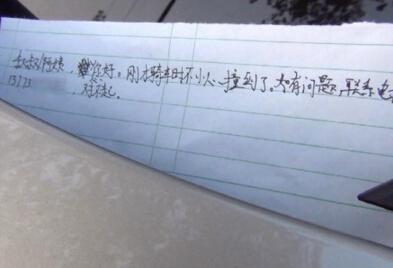 叔叔/阿姨，你好。刚才转车时不小心撞到了。如有问题，联系电
13123 ，对不起。